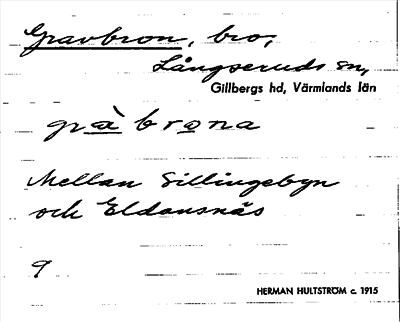 Gravbron, bro,
Långseruds sn,
Gillbergs hd, Värmlands län
grà brona
Mellan Sillingebyn
och Eldansnäs
9
HERMAN HULTSTRÖM c. 1915